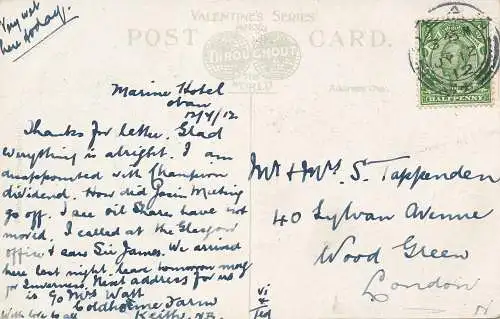 Very wet
here today.
VALENTINE'S SERIES
POST CARD.
FAMOUS
THROUGHOUT
THE
WORLD
Address Only.
HALFPENNY
12
Marine Hotel
Oban
12/7/12
Thanks for letter. Glad
everything is alright. I am
disappointed with Champion
dividend. How did Join Meeting
go off. I see oil Shares have not
moved. I called at the Glasgow
office & saw Sir James. We arrived
here last night, leave tomorrow
for Inverness. Next address for us
is c/o Mrs Watt
Coldhome Farm
Keith, N.B.
With love to all
Vi
&
Ted
Mr & Mrs S. Tappenden
40 Sylvan Avenue
Wood Green
London
N